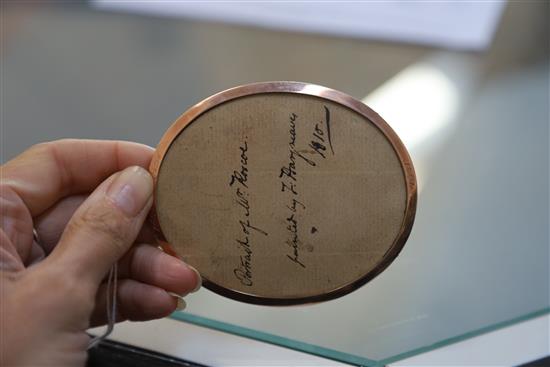 Portrait of Mr. Roscoe.
painted by T. Hargreaves
1810.